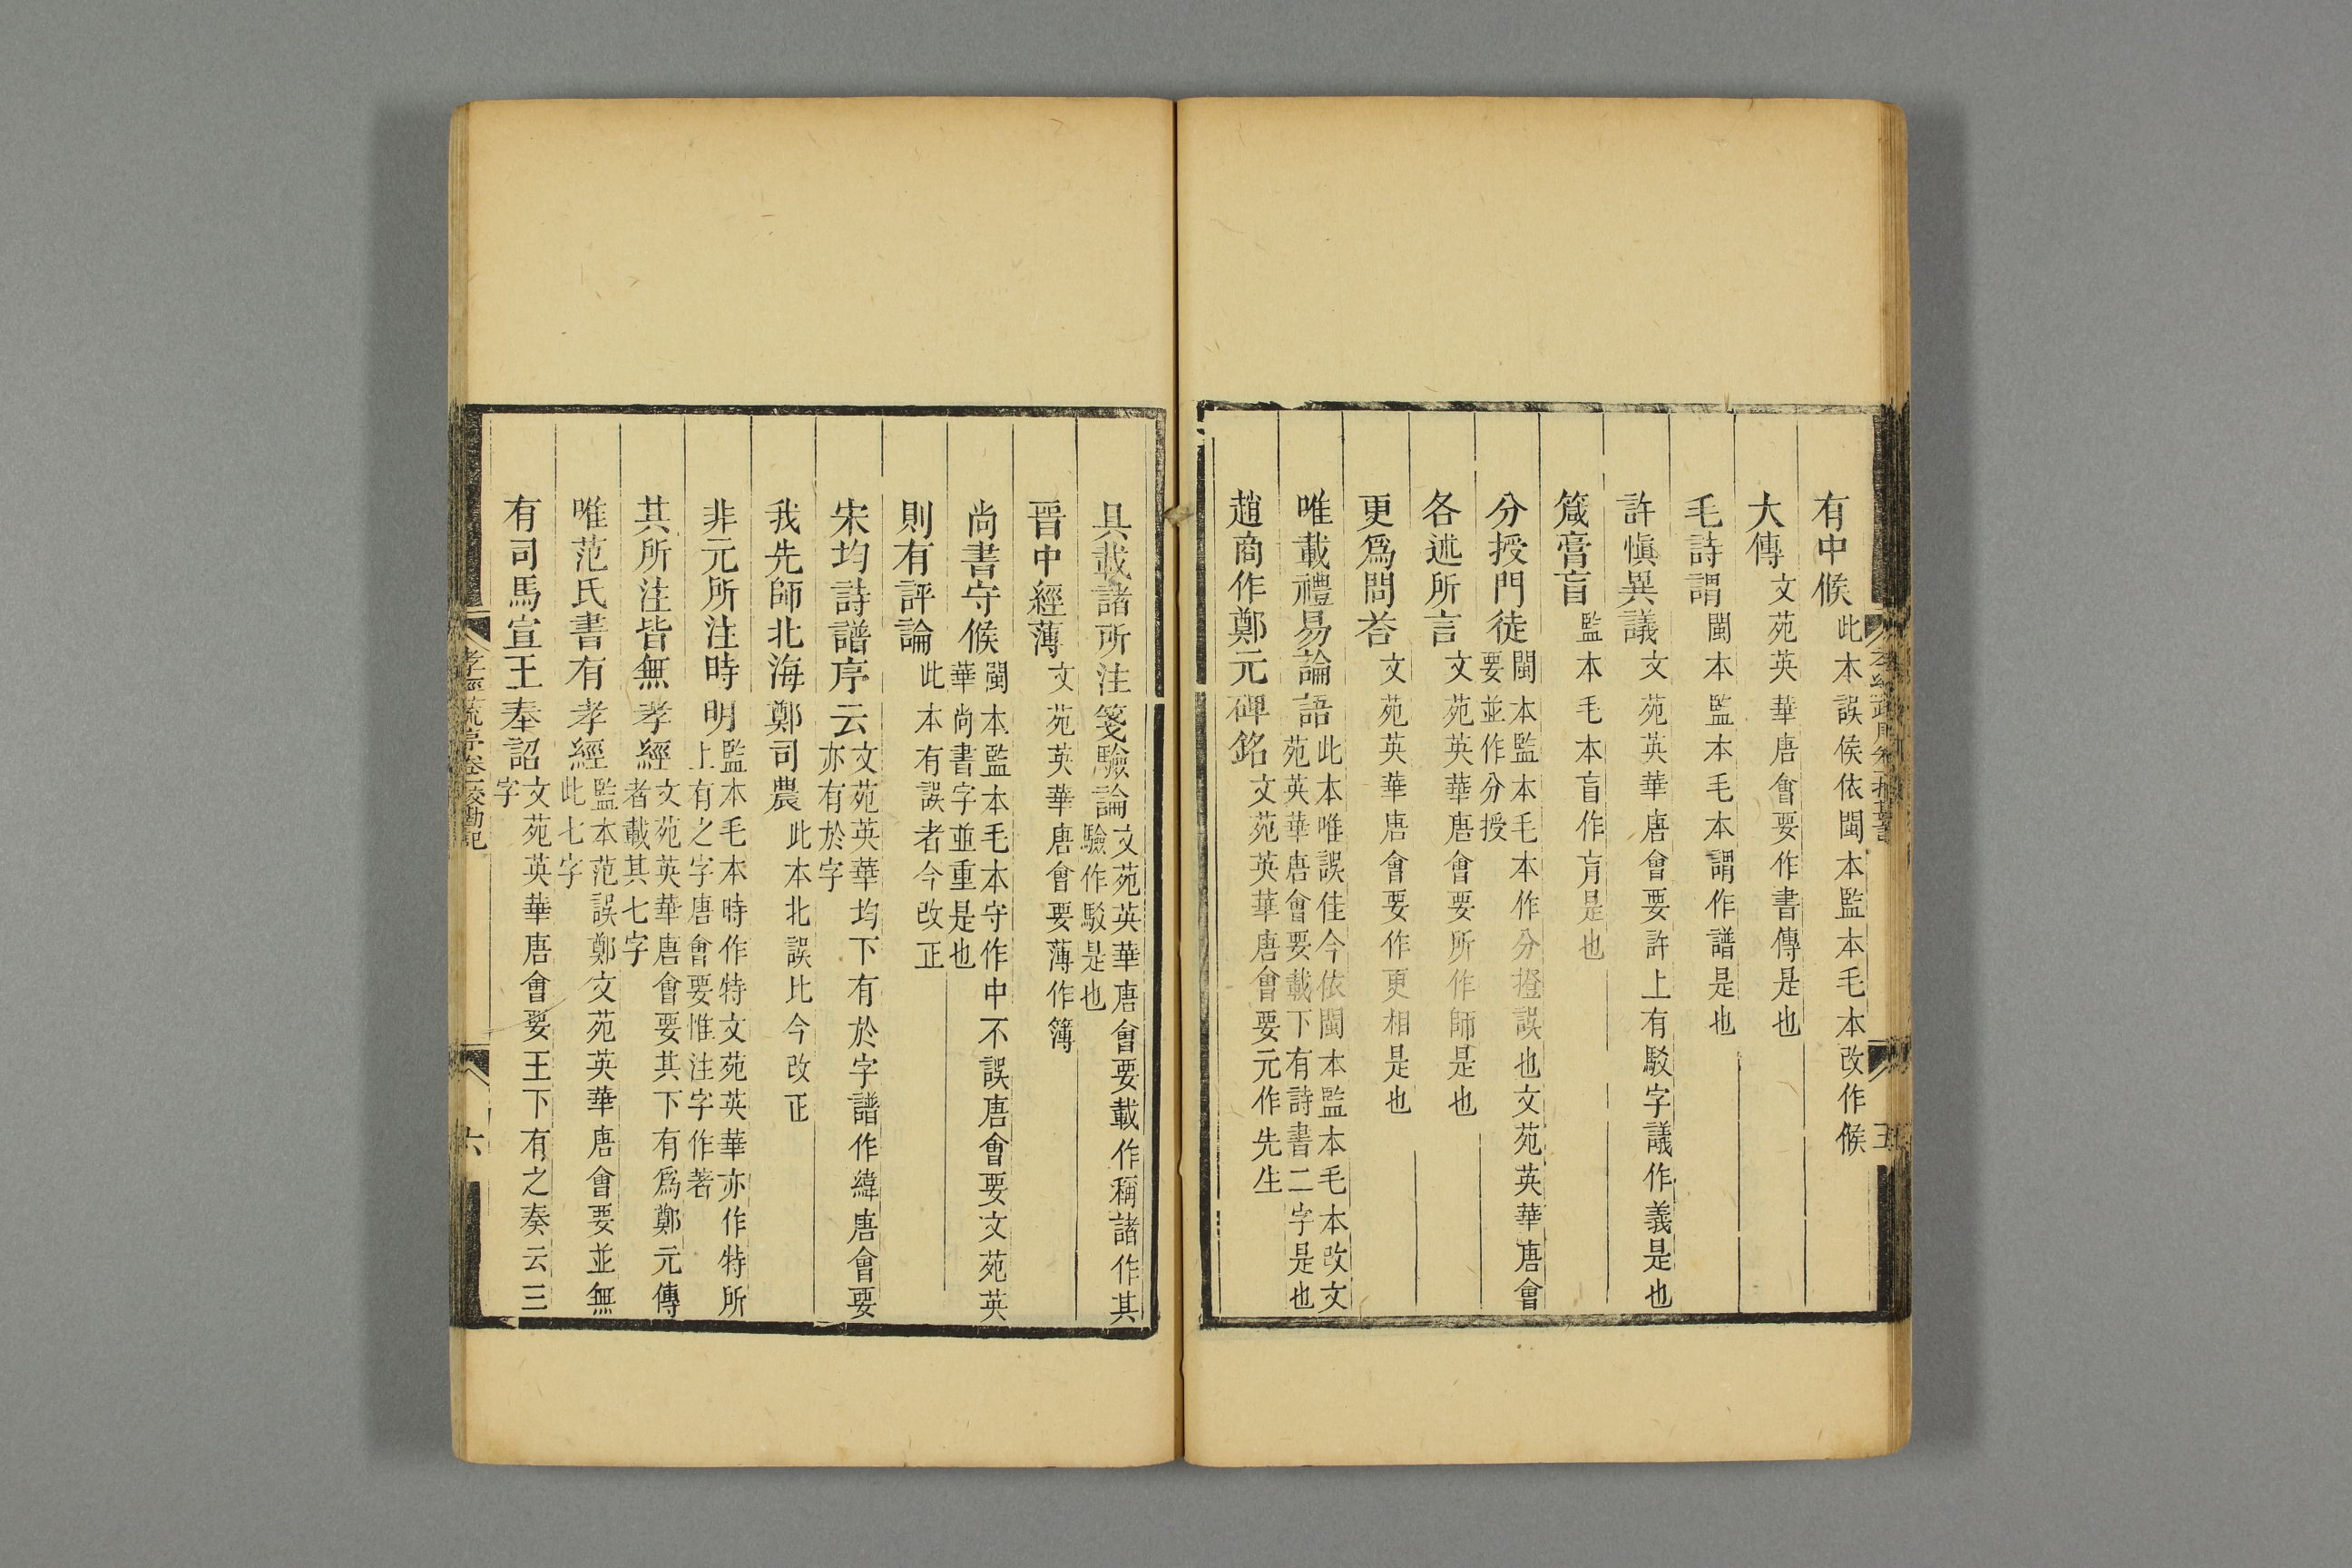 有中候此本誤侯依閩本監本毛本改作候
大傳文苑英華唐會要作書傳是也
毛詩謂閩本監本毛本謂作譜是也
許慎異議文苑英華唐會要許上有駁字議作義是也
箴膏盲監本毛本盲作肓是也
分授門徒閩本監本毛本作分證誤也文苑英華唐會要並作分授
各述所言文苑英華唐會要所作師是也
更爲問荅文苑英華唐會要作更相是也
唯載禮易論語此本唯誤佳今依閩本監本毛本改文苑英華唐會要載下有詩書二字是也
趙商作鄭元碑銘文苑英華唐會要元作先生
具載諸所注箋驗論文苑英華唐會要載作稱諸作其驗作駁是也
晉中經薄文苑英華唐會要薄作簿
尚書守候閩本監本毛本守作中不誤唐會要文苑英華尚書字並重是也
則有評論此本有誤者今改正
宋均詩譜序云文苑英華均下有於字譜作緯唐會要亦有於字
我先師北海鄭司農此本北誤比今改正
非元所注時明監本毛本時作特文苑英華亦作特所上有之字唐會要惟注字作著
其所注皆無孝經文苑英華唐會要其下有爲鄭元傳者載其七字
唯范氏書有孝經監本范誤鄭文苑英華唐會要並無此七字
有司馬宣王奉詔文苑英華唐會要王下有之奏云三字
孝經疏序卷校勘記
六